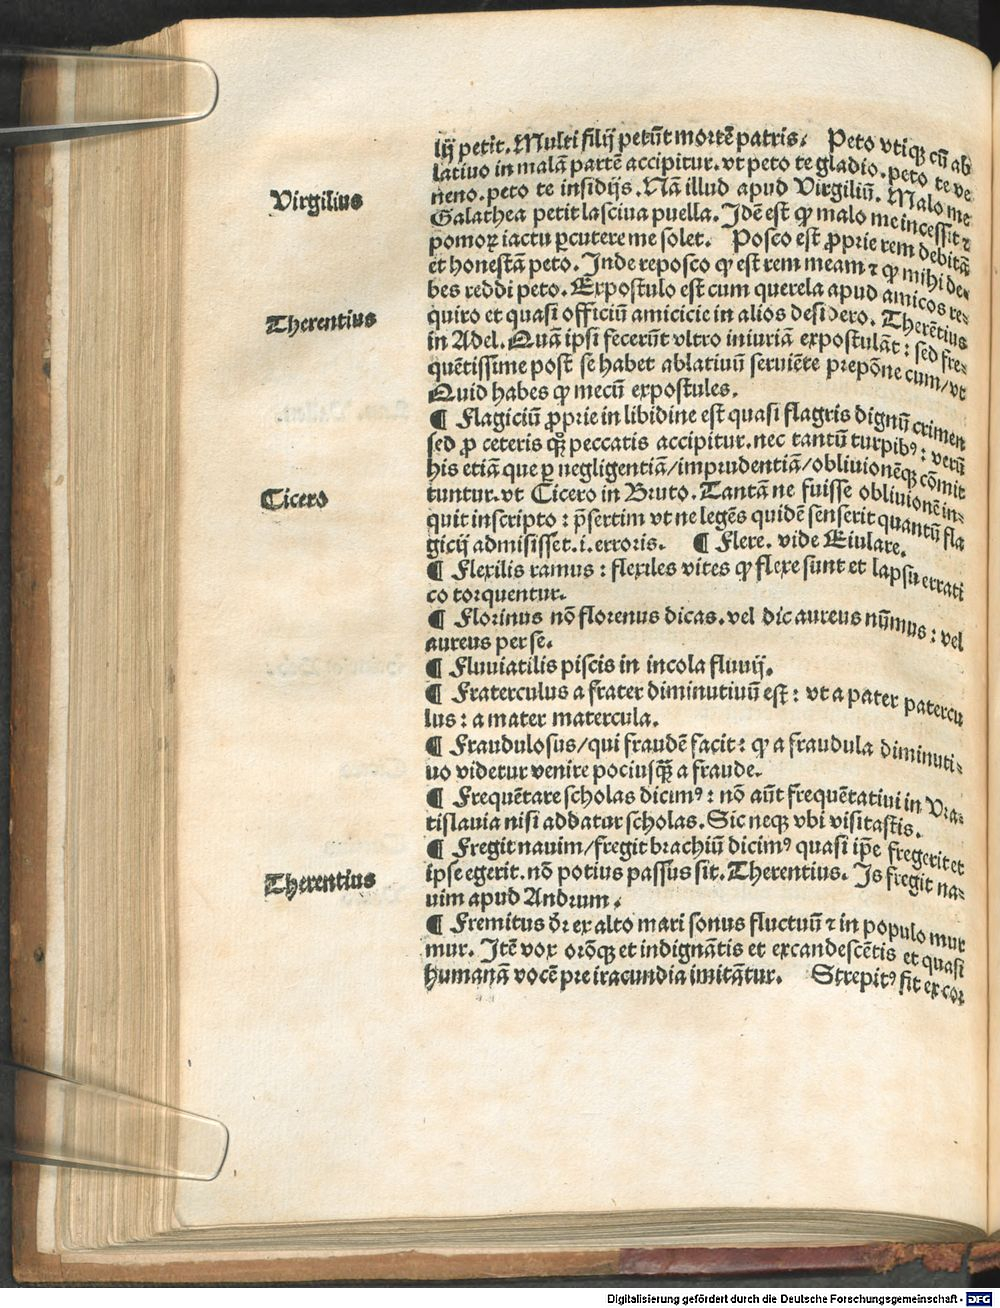 lij petit. Multi filij petūt mortē patris. Peto vtiqꝫ cū ab
latiuo in malā partē accipitur. vt peto te gladio. peto te ve
neno. peto te insidijs. Nā illud apud Virgiliū. Malo me
Virgilius
Galathea petit lasciua puella. Idē est qꝫ malo me incessit ⁊
pomoꝝ iactu ꝑcutere me solet. Posco est ꝓprie rem debitā
et honestā peto. Inde reposco qꝫ est rem meam ⁊ qꝫ mihi de⸗
bes reddi peto. Expostulo est cum querela apud amicos re⸗
quiro et quasi officiū amicicie in alios desidero. Therētius
Therentius
in Adel. Quā ipsi fecerūt vltro iniuriā expostulāt: sed fre⸗
quētissime post se habet ablatiuū seruiēte prepōne cum/vt
Quid habes qꝫ mecū expostules.
¶ Flagiciū ꝓprie in libidine est quasi flagris dignū crimen
sed ꝓ ceteris qꝫ peccatis accipitur. nec tantū turpibꝰ: verū
his etiā que ꝑ negligentiā/imprudentiā/obliuionēqꝫ cōmit
Cicero
tuntur. vt Cicero in Bruto. Tantā ne fuisse obliuionē in⸗
quit in scripto: p̄sertim vt ne legēs quidē senserit quantū fla
gicij admisisset. i. erroris. ¶ Flere. vide Eiulare.
¶ Flexilis ramus: flexiles vites qꝫ flexe sunt et lapsu errati
co torquentur.
¶ Florinus nō florenus dicas. vel dic aureus nūmus: vel
aureus per se.
¶ Fluuiatilis piscis in incola fluuij.
¶ Fraterculus a frater diminutiuū est: vt a pater patercu
lus: a mater matercula.
¶ Fraudulosus/qui fraudē facit: qꝫ a fraudula diminuti⸗
uo videtur venire pociusqꝫ̄ a fraude.
¶ Frequētare scholas dicimꝰ: nō aūt frequētatiui in Vra⸗
tislauia nisi addatur scholas. Sic neqꝫ vbi visitastis.
¶ Fregit nauim/fregit brachiū dicimꝰ quasi ip̄e fregerit et
ipse egerit. nō potius passus sit. Therentius. Is fregit na⸗
Therentius
uim apud Andrum.
¶ Fremitus dr̄ ex alto mari sonus fluctuū ⁊ in populo mur
mur. Itē vox orōqꝫ et indignātis et excandescētis et quasi
humanā vocē pre iracundia imitātur. Strepitꝰ fit ex cor
Digitalisierung gefördert durch die Deutsche Forschungsgemeinschaft - DFG